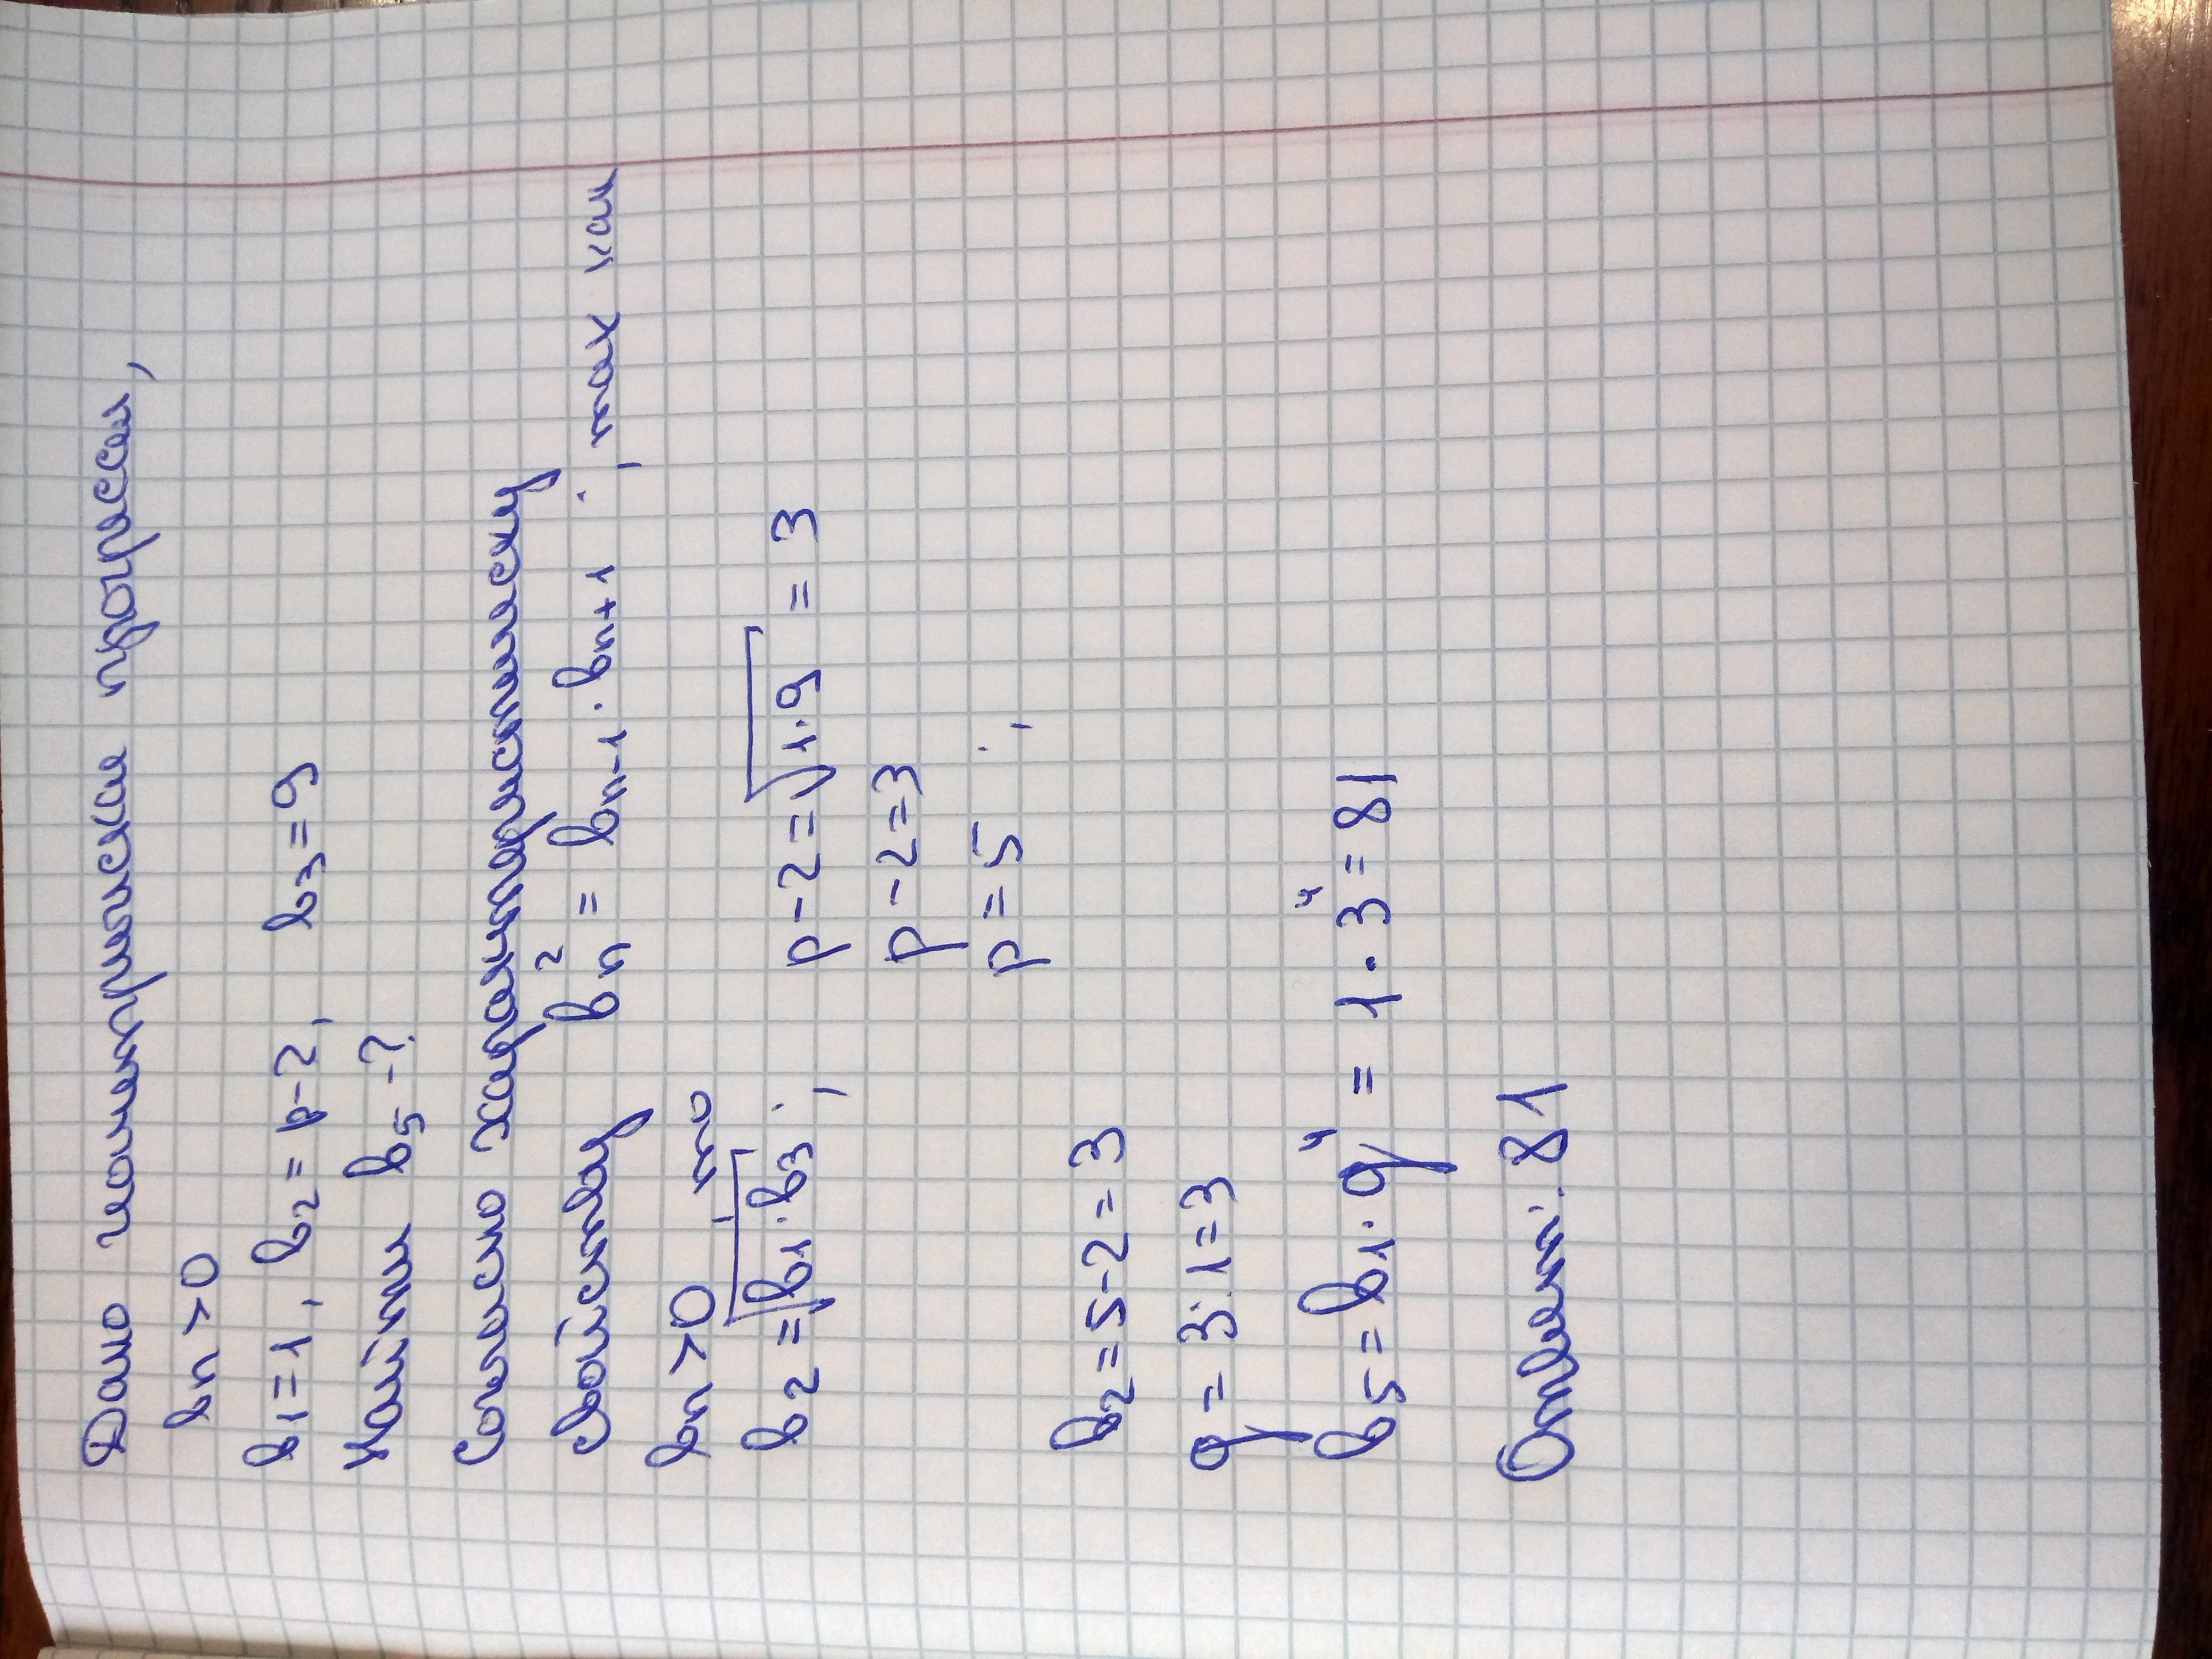 Дано геометрическая прогрессия,
bn > 0
b1 = 1, b2 = p - 2, b3 = 9
Найти b5 - ?
Согласно характеристическому
свойству bn² = bn-1 · bn+1 ; так как
bn > 0, то
b2 = √b1·b3 ; p - 2 = √1·9 = 3
p - 2 = 3
p = 5 ;
b2 = 5 - 2 = 3
q = 3 : 1 = 3
b5 = b1 · q⁴ = 1 · 3⁴ = 81
Ответ: 81